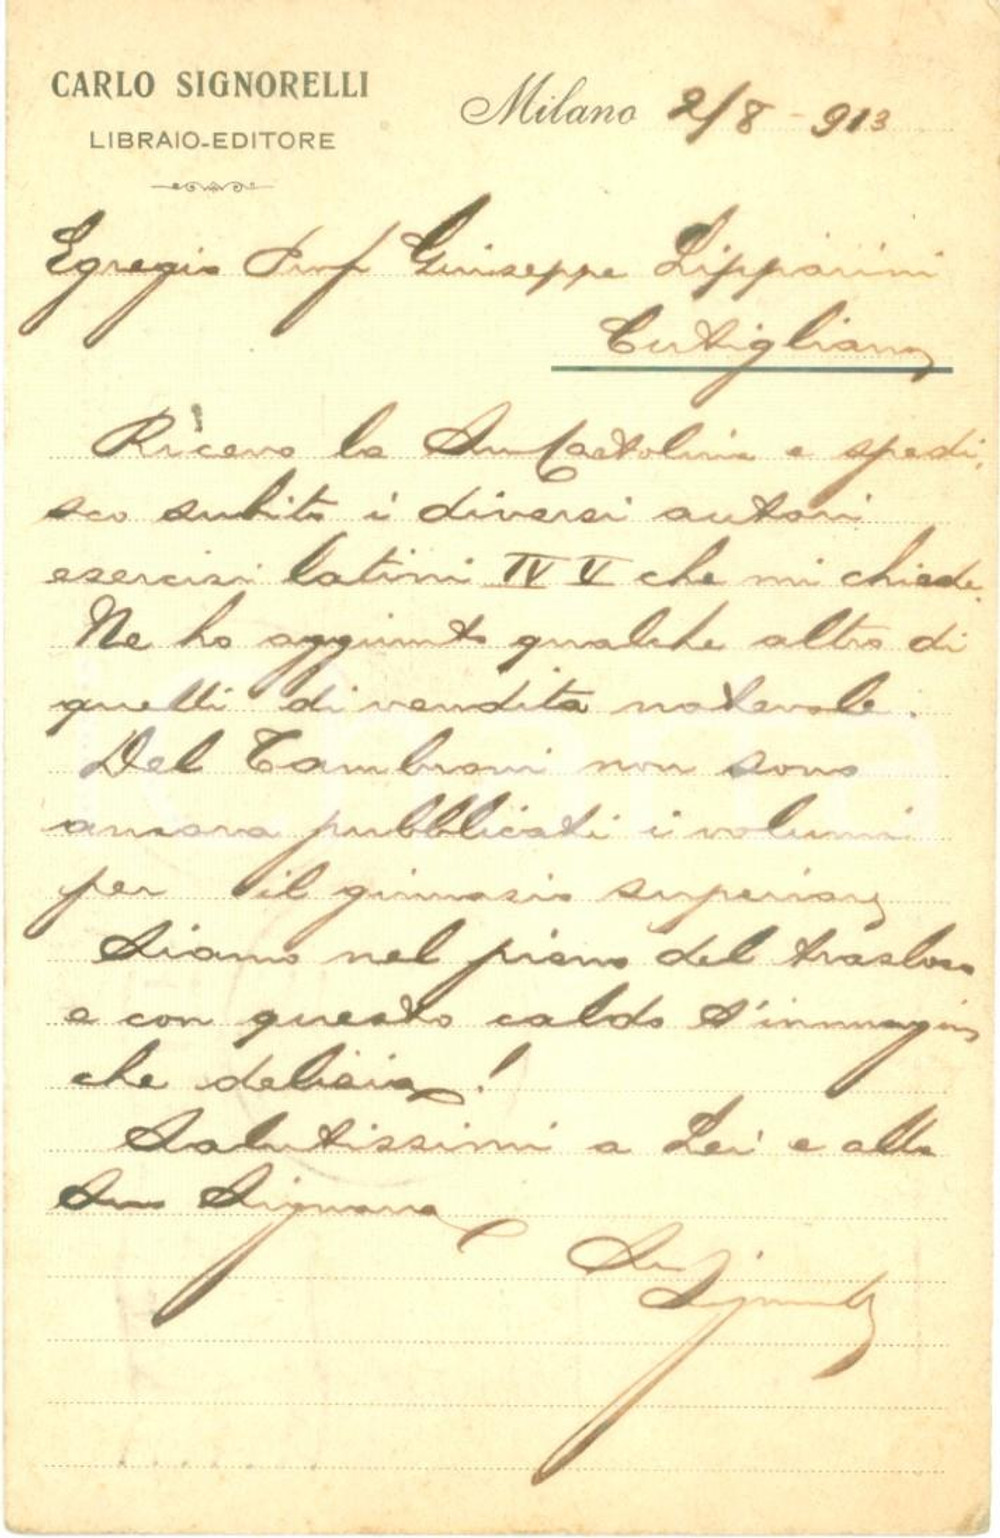 CARLO SIGNORELLI
LIBRAIO-EDITORE
Milano 2/8 - 913
Egregio Prof Giuseppe Lipparini
Cutigliano
Ricevo la Sua Cartolina e spedi
sco subito i diversi autori
esercizi latini IV V che mi chiede.
Ne ho aggiunto qualche altro di
quelli di vendita notevole.
Del Tambroni non sono
ancora pubblicati i volumi
per il ginnasio superiore
Siamo nel pieno del trasloco
e con questo caldo s'immagini
che delizia!
Salutissimi a Lei e alla
Sua Signora
Suo
Signorelli